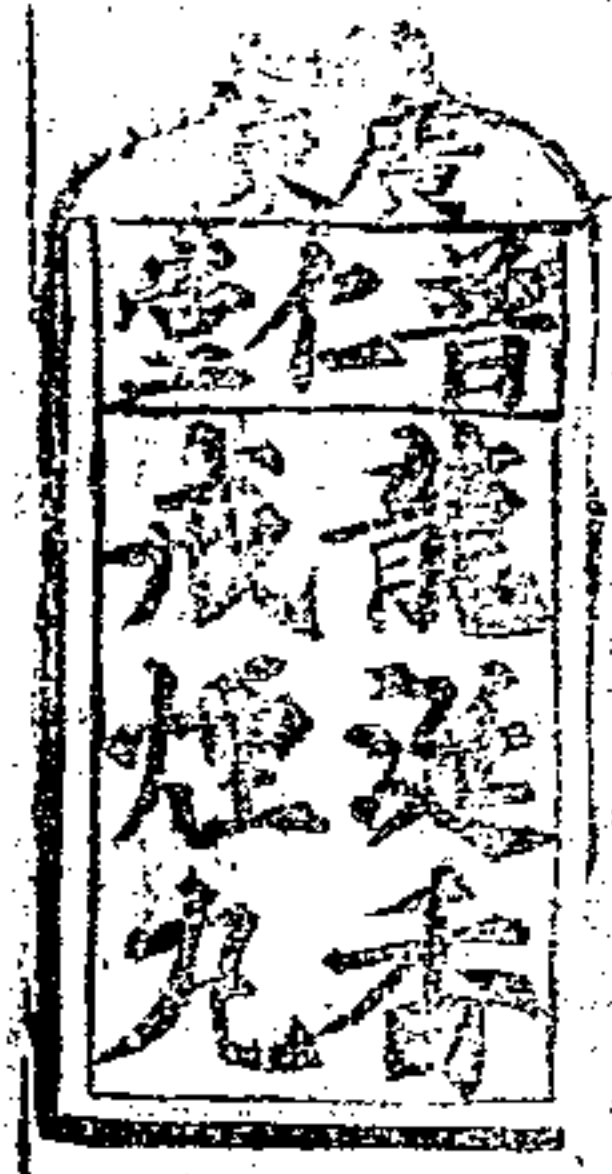 廣東
普仁堂
龍涎香
戒煙丸